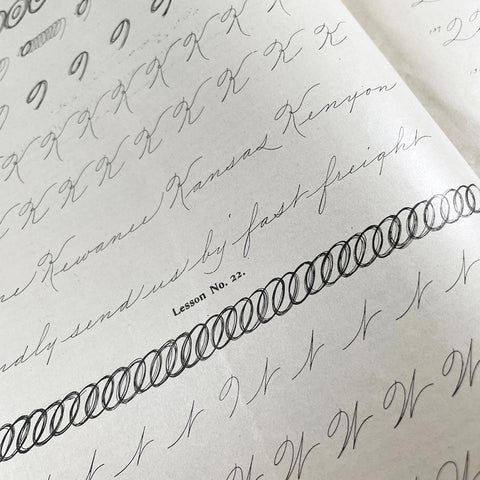 K K K K K K K K
K K K K K K K K K
Kewanee Kansas Kenyon
send us by fast freight
Lesson No. 22.
W W W W W